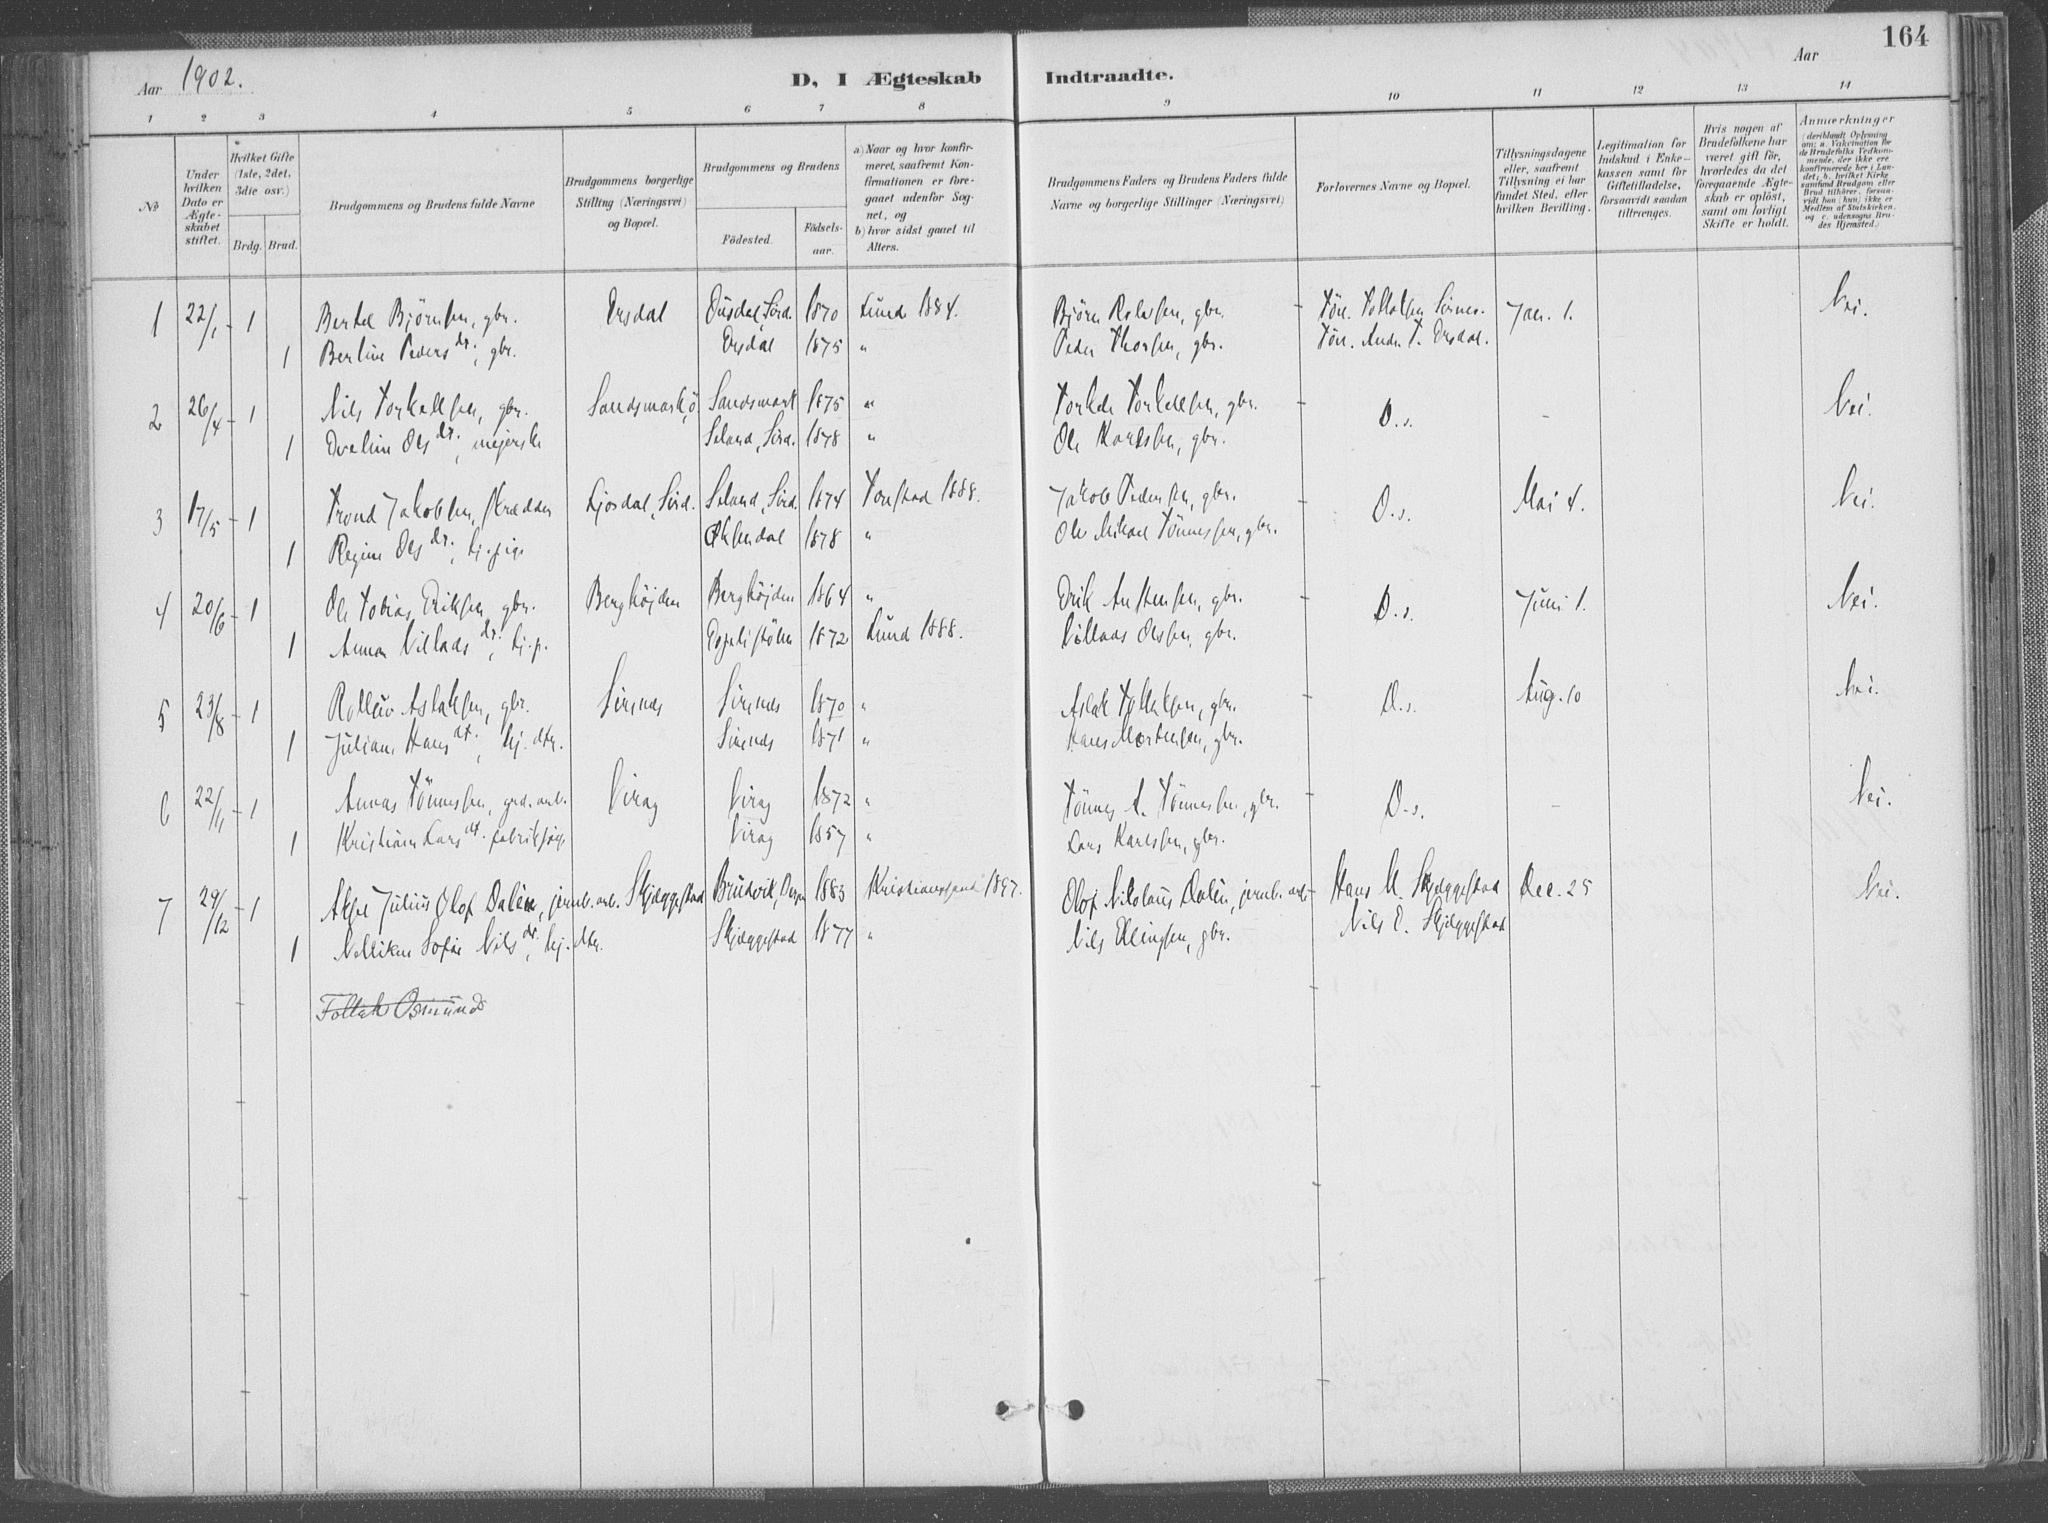 164
Aar 1902.
D, I Ægteskab Indtraadte.
Aar
1 2 3 4 5 6 7 8 9 10 11 12 13 14
No
Under hvilken Dato er Ægteskabet stiftet.
Hvilket Gifte (1ste, 2det, 3die osv.)
Brdg. Brud.
Brudgommens og Brudens fulde Navne
Brudgommens borgerlige Stilling (Næringsvei) og Bopæl.
Brudgommens og Brudens
Födested.
Födselsaar.
a) Naar og hvor konfirmeret, saafremt Konfirmationen er foregaaet udenfor Sognet, og
b) hvor sidst gaaet til Alters.
Brudgommens Faders og Brudens Faders fulde Navne og borgerlige Stillinger (Næringsvei)
Forlovernes Navne og Bopæl.
Tillysningsdagene eller, saafremt Tillysning ei har fundet Sted, efter hvilken Bevilling.
Legitimation for Indskud i Enkekassen samt for Giftetilladelse, forsaavidt saadan tiltrænges.
Hvis nogen af Brudefolkene har været gift för, hvorledes da det foregaaende Ægteskab er oplöst, samt om lovligt Skifte er holdt.
Anmærkninger (deriblandt Oplysning om: a. Vakcination for de Brudefolks Vedkommende, der ikke ere konfirmerede her i Landet; b. hvilket Kirkesamfund Brudgom eller Brud tilhörer, forsavidt han (hun) ikke er Medlem af Statskirken, og c. udensogns Brudes Hjemsted.)
1 22/1 - 1 Bertel Björnsen, gbr. Ersdal Ousdal, Sird. 1870 Lund 1884. Björn Rolvsen, gbr. Tön. Tollaksen Sirnes. Jan. 1. Nei.
1 Berline Peders dr., gbr. Ersdal 1875 " Peder Thorsen, gbr. Tön. Andr. T. Ersdal.
2 26/4 - 1 Nils Torkelsen, gbr. Sandsmark Sandsmark 1875 " Torkel Torkelsen, gbr. D.s. - Nei.
1 Eveline Ols dr., mejerske Seland, Sird. 1878 " Ole Karlsen, gbr.
3 17/5 - 1 Trond Jakobsen, skrædder Ljosdal, Sird. Seland, Sird. 1874 Tonstad 1888. Jakob Pedersen, gbr. D.s. Mai 4. Nei.
1 Regine Ols dr., tj.pige Öksendal 1878 " Ole Mikael Tönnessen, gbr.
4 20/6 - 1 Ole Tobias Eriksen, gbr. Berghöjden Berghöjden 1864 " Erik Austensen, gbr. D.s. Juni 1. Nei.
1 Anna Villads dr., tj.p. Espelistölen 1872 Lund 1888. Villads Olsen, gbr.
5 23/8 - 1 Rolleiv Aslaksen, gbr. Sirenes Sirenes 1870 " Aslak Tollaksen, gbr. D.s. Aug. 10 Nei.
1 Juliane Hans dt., hj. dtr. Sirenes 1871 " Hans Mortensen, gbr.
6 22/11 - 1 Annas Tönnessen, grd.arb. Virag Virag 1872 " Tönnes A. Tönnessen, gbr. D.s. - Nei.
1 Kristiane Lars dt. fabrikpige Virag 1857 " Lars Karlsen, gbr.
7 29/12 - 1 Aksel Julius Olof Dalén, jernb.arb. Skjeggestad Brudvik, Bergen 1883 Kristianssand 1897. Olof Nikolaus Dalén, jernb.arb. Hans M. Skjeggestad Dec. 25 Nei.
1 Nelliken Sofie Nils dr., hj. dtr. Skjeggestad 1877 " Nils Ellingsen, gbr. Nils E. Skjeggestad
Tollak Osmunds